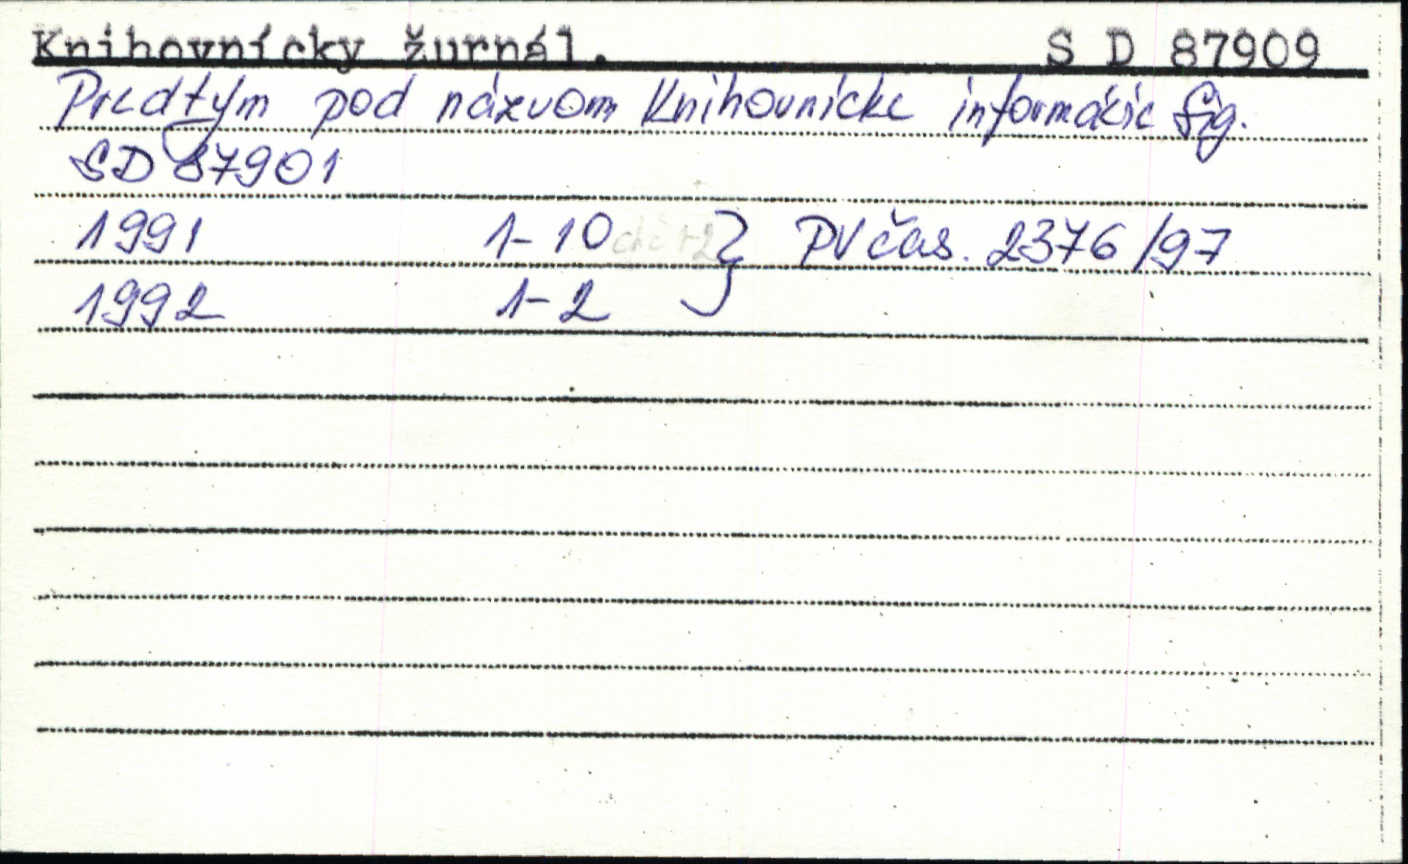 Knihovnícky žurnál. S D 87909
Predtým pod názvom Knihovnícke informácie Sig.
SD 87901
1991 1-10 } PV čas. 2376/97
1992 1-2